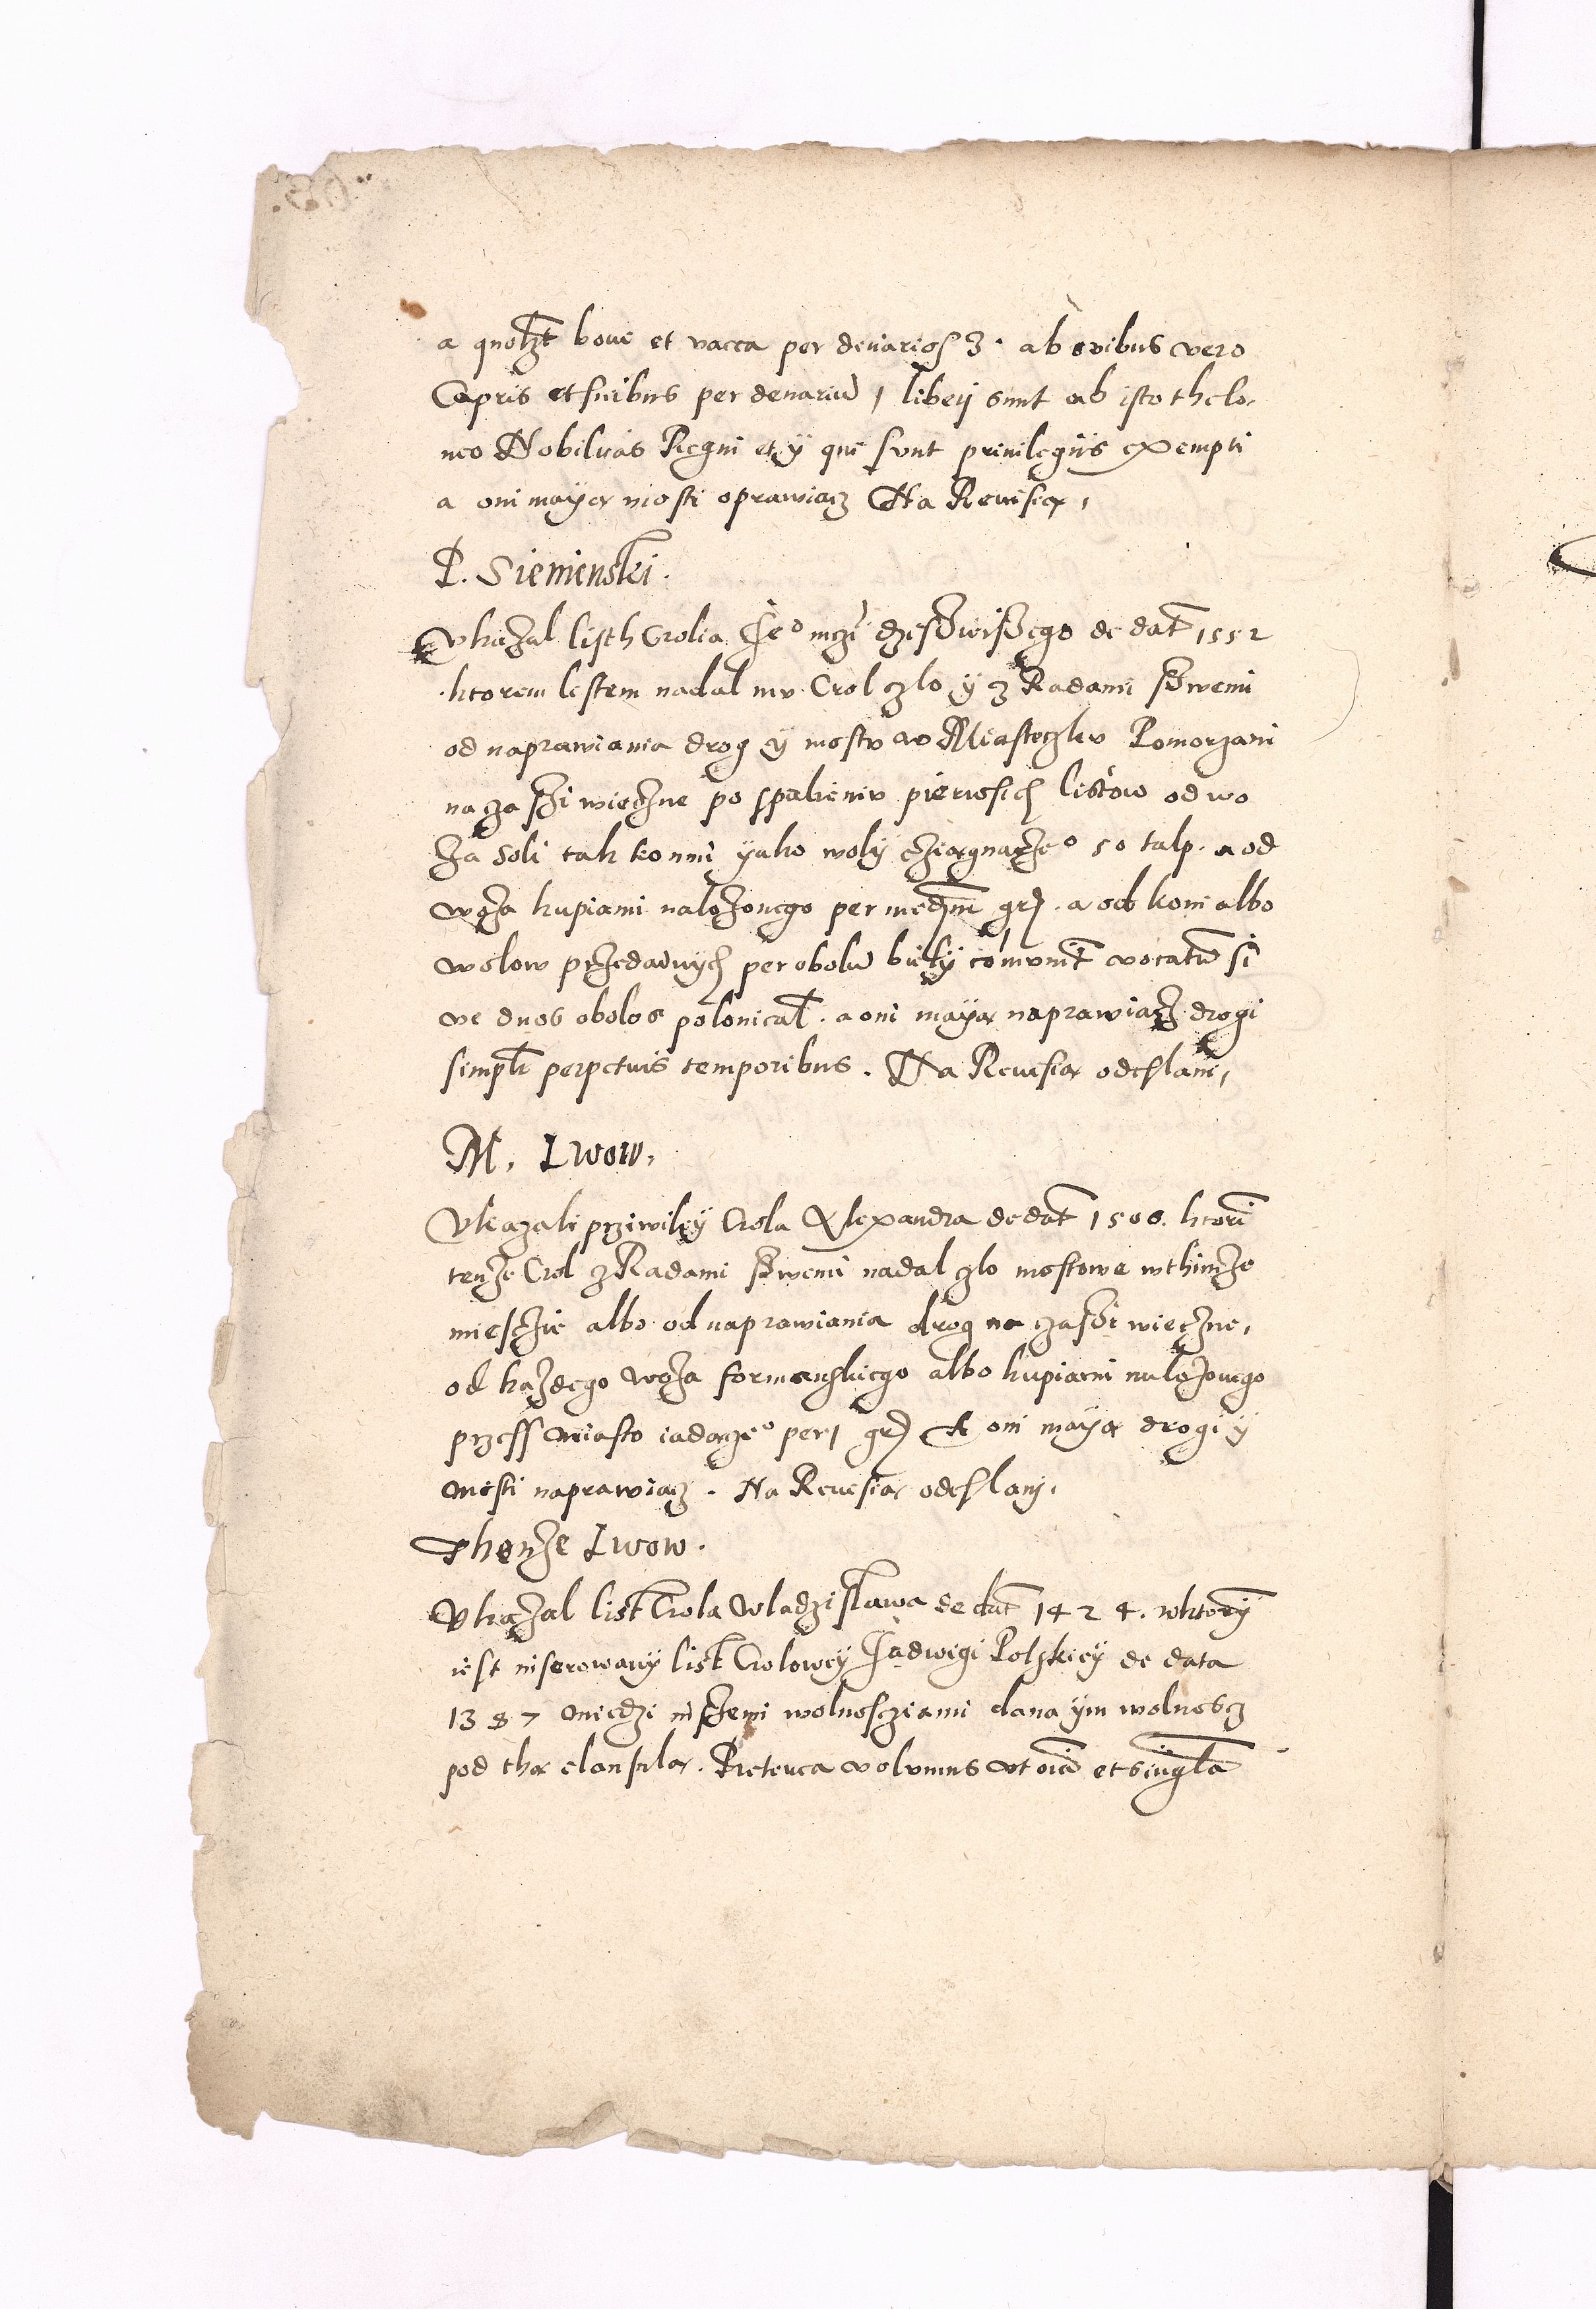 a quolzt boue et vacca per denarios 3. ab ovibus vero
Capris et suibus per denariu 1 liberi sunt ab isto thelo-
neo Nobilitas Regni et y qui sunt priuilegiis exempti
a oni mayą mosti oprawiacz Na Rewisią,
P. Sieniensky.
Vkazal listh Crolia Jeo mczi dzisZeiszego de dat 1552
ktorem lestem nadal mv Crol czlo y z Radami swemi
od naprawiania drog y mostv w Miasteczkv Pomorzani
na czasZi wieczne po spalieniv pierwsich listow od wo
za soli tak konmi yako woly cziągnaczeo 50 talp. a od
woza kupiami nalozonego per medium grs. a od koni albo
wolow przedawnych per obolu vocatu si
ve duos obolos polonical. a oni mayą naprawiacz drogi
simplr perpetuis temporibus. Na Revisią odeslani,
M. Lwow.
Vkazali prziwiley Crola Alexandra de dat 1506. ktori
tenze Crol z Radami swemi nadal czlo mostowe w thimze
miesczie albo od naprawiania drog na czasZi wieczne,
od kazdego woza formanskiego albo kupiami nalozonego
przess miasto iadączeo per 1 grs A oni mayą drogi y
mosti naprawiacz. Na Revisią odeslany,
Thenze Lwow.
Vkazal list Crola Wladzislawa de dat 1424. w ktory
iest inserowany list Crolowey Jadwigi Polskiey de data
1387 miedzi inszemi wolnoscziami dana ym wolnoscz
pod thą clausulą. Preterea volumus vt oia et singula